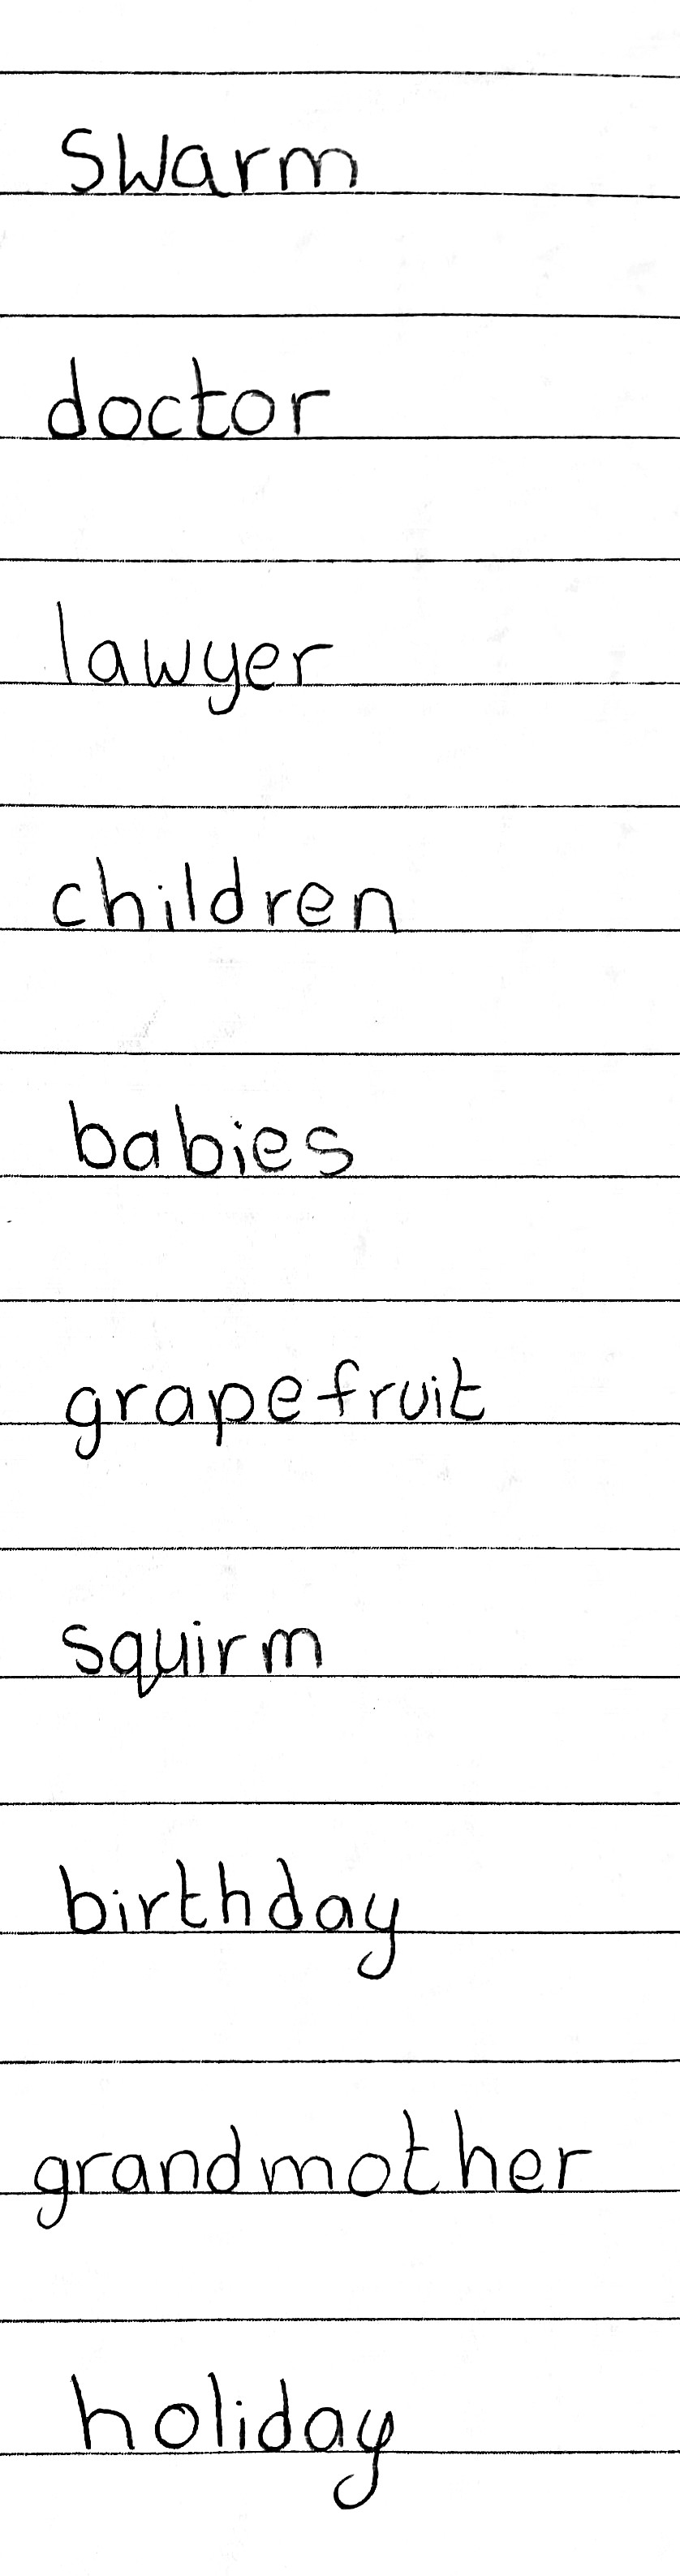 swarm
doctor
lawyer
children
babies
grapefruit
squirm
birthday
grandmother
holiday